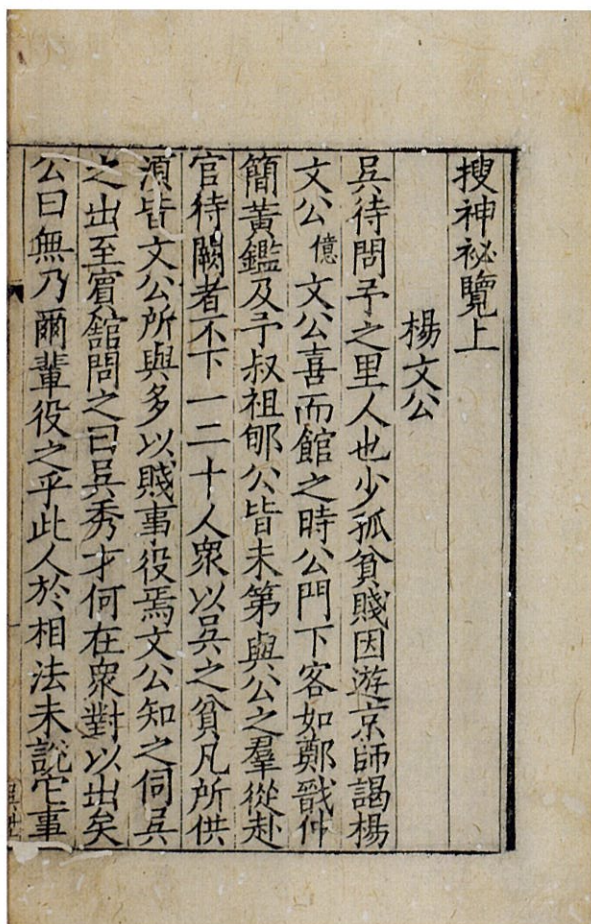 搜神祕覽上
楊文公
吳待問予之里人也少孤貧賤因遊京師謁楊
文公億文公喜而館之時公門下客如鄭戩仲
簡黃鑑及予叔祖郇公皆未第與公之羣從赴
官待闕者不下一二十人衆以吳之貧凡所供
須皆文公所與多以賤事役焉文公知之伺吳
之出至賓舘問之曰吳秀才何在衆對以出矣
公曰無乃爾輩役之乎此人於相法未說它事